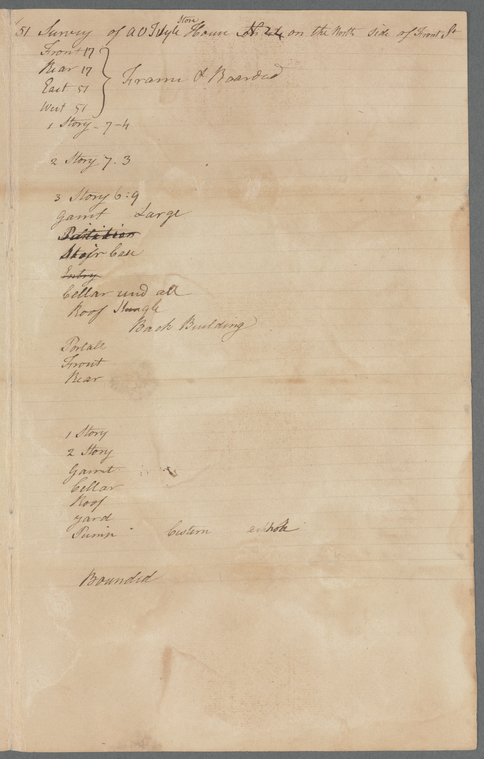 51 Survey of A O Store House No 24 on the North side of Front St
Front 17
Rear 17
East 51
West 51
Frame & Boarded
1 Story - 7-4
2 Story 7-3
3 Story 6:9
Garrit Large
Stair Case
Entry
Cellar und all
Roof Shingle
Back Building
Front
Rear
1 Story
2 Story
Garrit
Cellar
Roof
Yard
Pump Cistern
Bounded